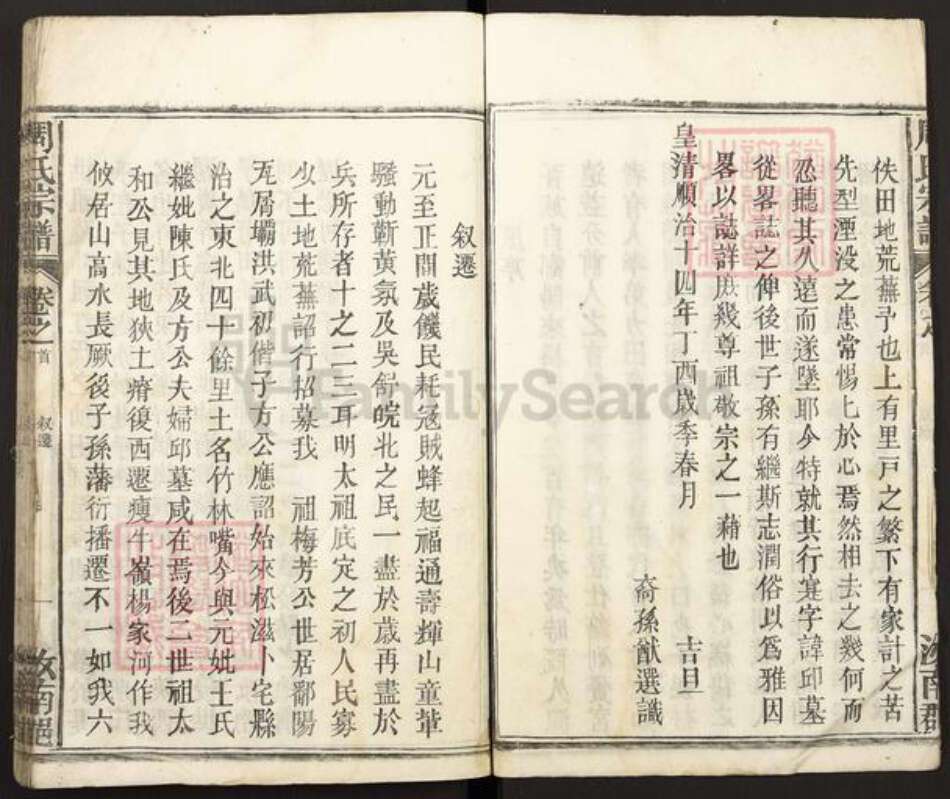 佚田地荒蕪予也上有里戸之繁下有家計之苦
先型湮没之患常惕上於心焉然相去之幾何而
忍聽其久遠而遂墜耶今特就其行寔字諱邱墓
從畧誌之俾後世子孫有繼斯志潤俗以爲雅因
畧以誌詳庶幾尊祖敬宗之一藉也
皇清順治十四年丁酉歲季春月 吉旦
裔孫猷選識
周氏宗譜 卷之首 叙遷
叙遷
元至正間歲饑民耗冦賊蜂起福通壽輝山童軰
騷動蘄黄氛及吳舒皖北之民一盡於歳再盡於
兵所存者十之二三耳明太祖底定之初人民寡
少土地荒蕪詔行招募我 祖梅芳公世居鄱陽
瓦屑壩洪武初偕子方公應詔始來松滋卜宅縣
治之東北四十餘里土名竹林嘴今與元妣王氏
繼妣陳氏及方公夫婦邱墓咸在焉後二世祖太
和公見其地狹土瘠復西遷瘦牛嶺楊家河作我
攸居山高水長厥後子孫藩衍播遷不一如我六
汝南
FamilySearch